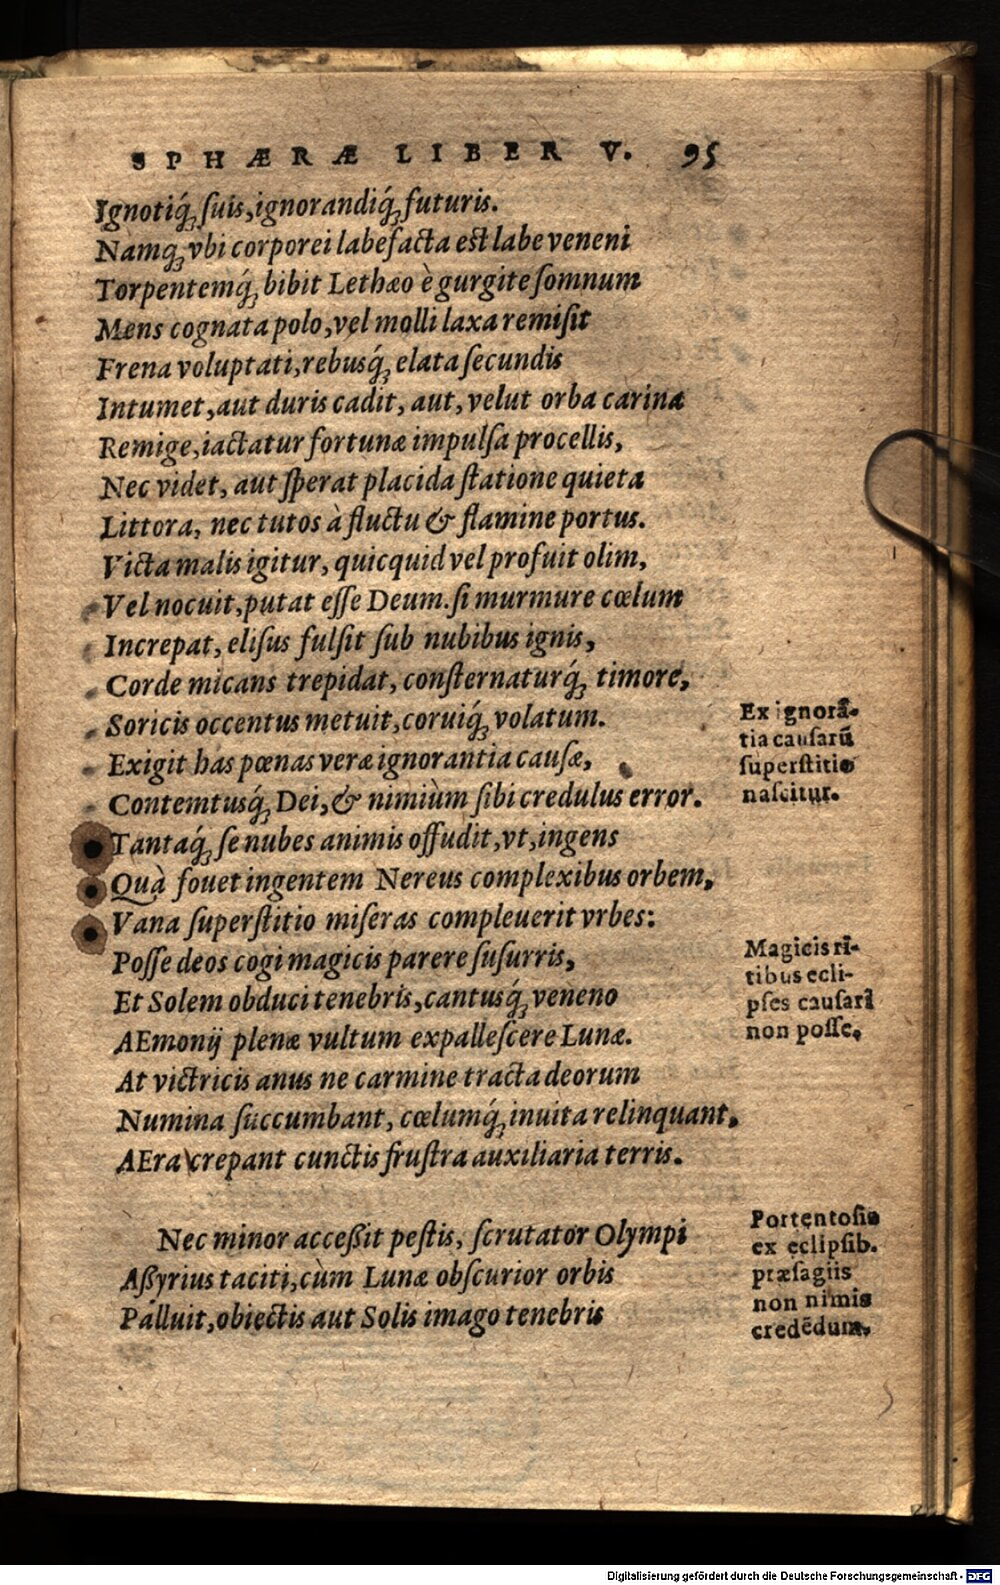 SPHÆRÆ LIBER V. 95
Ignotiq́; ſuis, ignorandiq́; futuris.
Namq; vbi corporei labefacta est labe veneni
Torpentemq́; bibit Lethæo è gurgite ſomnum
Mens cognata polo, vel molli laxa remiſit
Frena voluptati, rebusq́; elata ſecundis
Intumet, aut duris cadit, aut, velut orba carina
Remige, iactatur fortunæ impulſa procellis,
Nec videt, aut ſperat placida ſtatione quieta
Littora, nec tutos à fluctu & flamine portus.
Victa malis igitur, quicquid vel profuit olim,
Vel nocuit, putat eſſe Deum. ſi murmure cœlum
Increpat, eliſus fulſit ſub nubibus ignis,
Corde micans trepidat, conſternaturq́; timore,
Soricis occentus metuit, coruiq́; volatum.
Exigit has pœnas veræ ignorantia cauſæ,
Contemtusq́; Dei, & nimiùm ſibi credulus error.
Ex ignorã-
tia cauſarũ
ſuperſtitio
naſcitur.
Tantaq́; ſe nubes animis offudit, vt, ingens
Quà fouet ingentem Nereus complexibus orbem,
Vana ſuperſtitio miſeras compleuerit vrbes:
Poſſe deos cogi magicis parere ſuſurris,
Et Solem obduci tenebris, cantusq́; veneno
AEmonij plenæ vultum expalleſcere Lunæ.
Magicis ri-
tibus ecli-
pſes cauſari
non poſſe,
At victricis anus ne carmine tracta deorum
Numina ſuccumbant, cœlumq́; inuita relinquant,
AEra crepant cunctis fruſtra auxiliaria terris.
Nec minor acceßit peſtis, ſcrutator Olympi
Aßyrius taciti, cùm Lunæ obſcurior orbis
Palluit, obiectis aut Solis imago tenebris
Portentoſis
ex eclipſib.
præſagiis
non nimis
credẽdum,
Digitalisierung gefördert durch die Deutsche Forschungsgemeinschaft - DFG